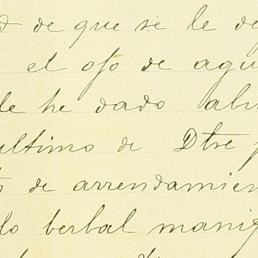 d de que se le de
el ojo de agu
le he dado abu
ultimo de Dbre p
s de arrendamien
do berbal manif